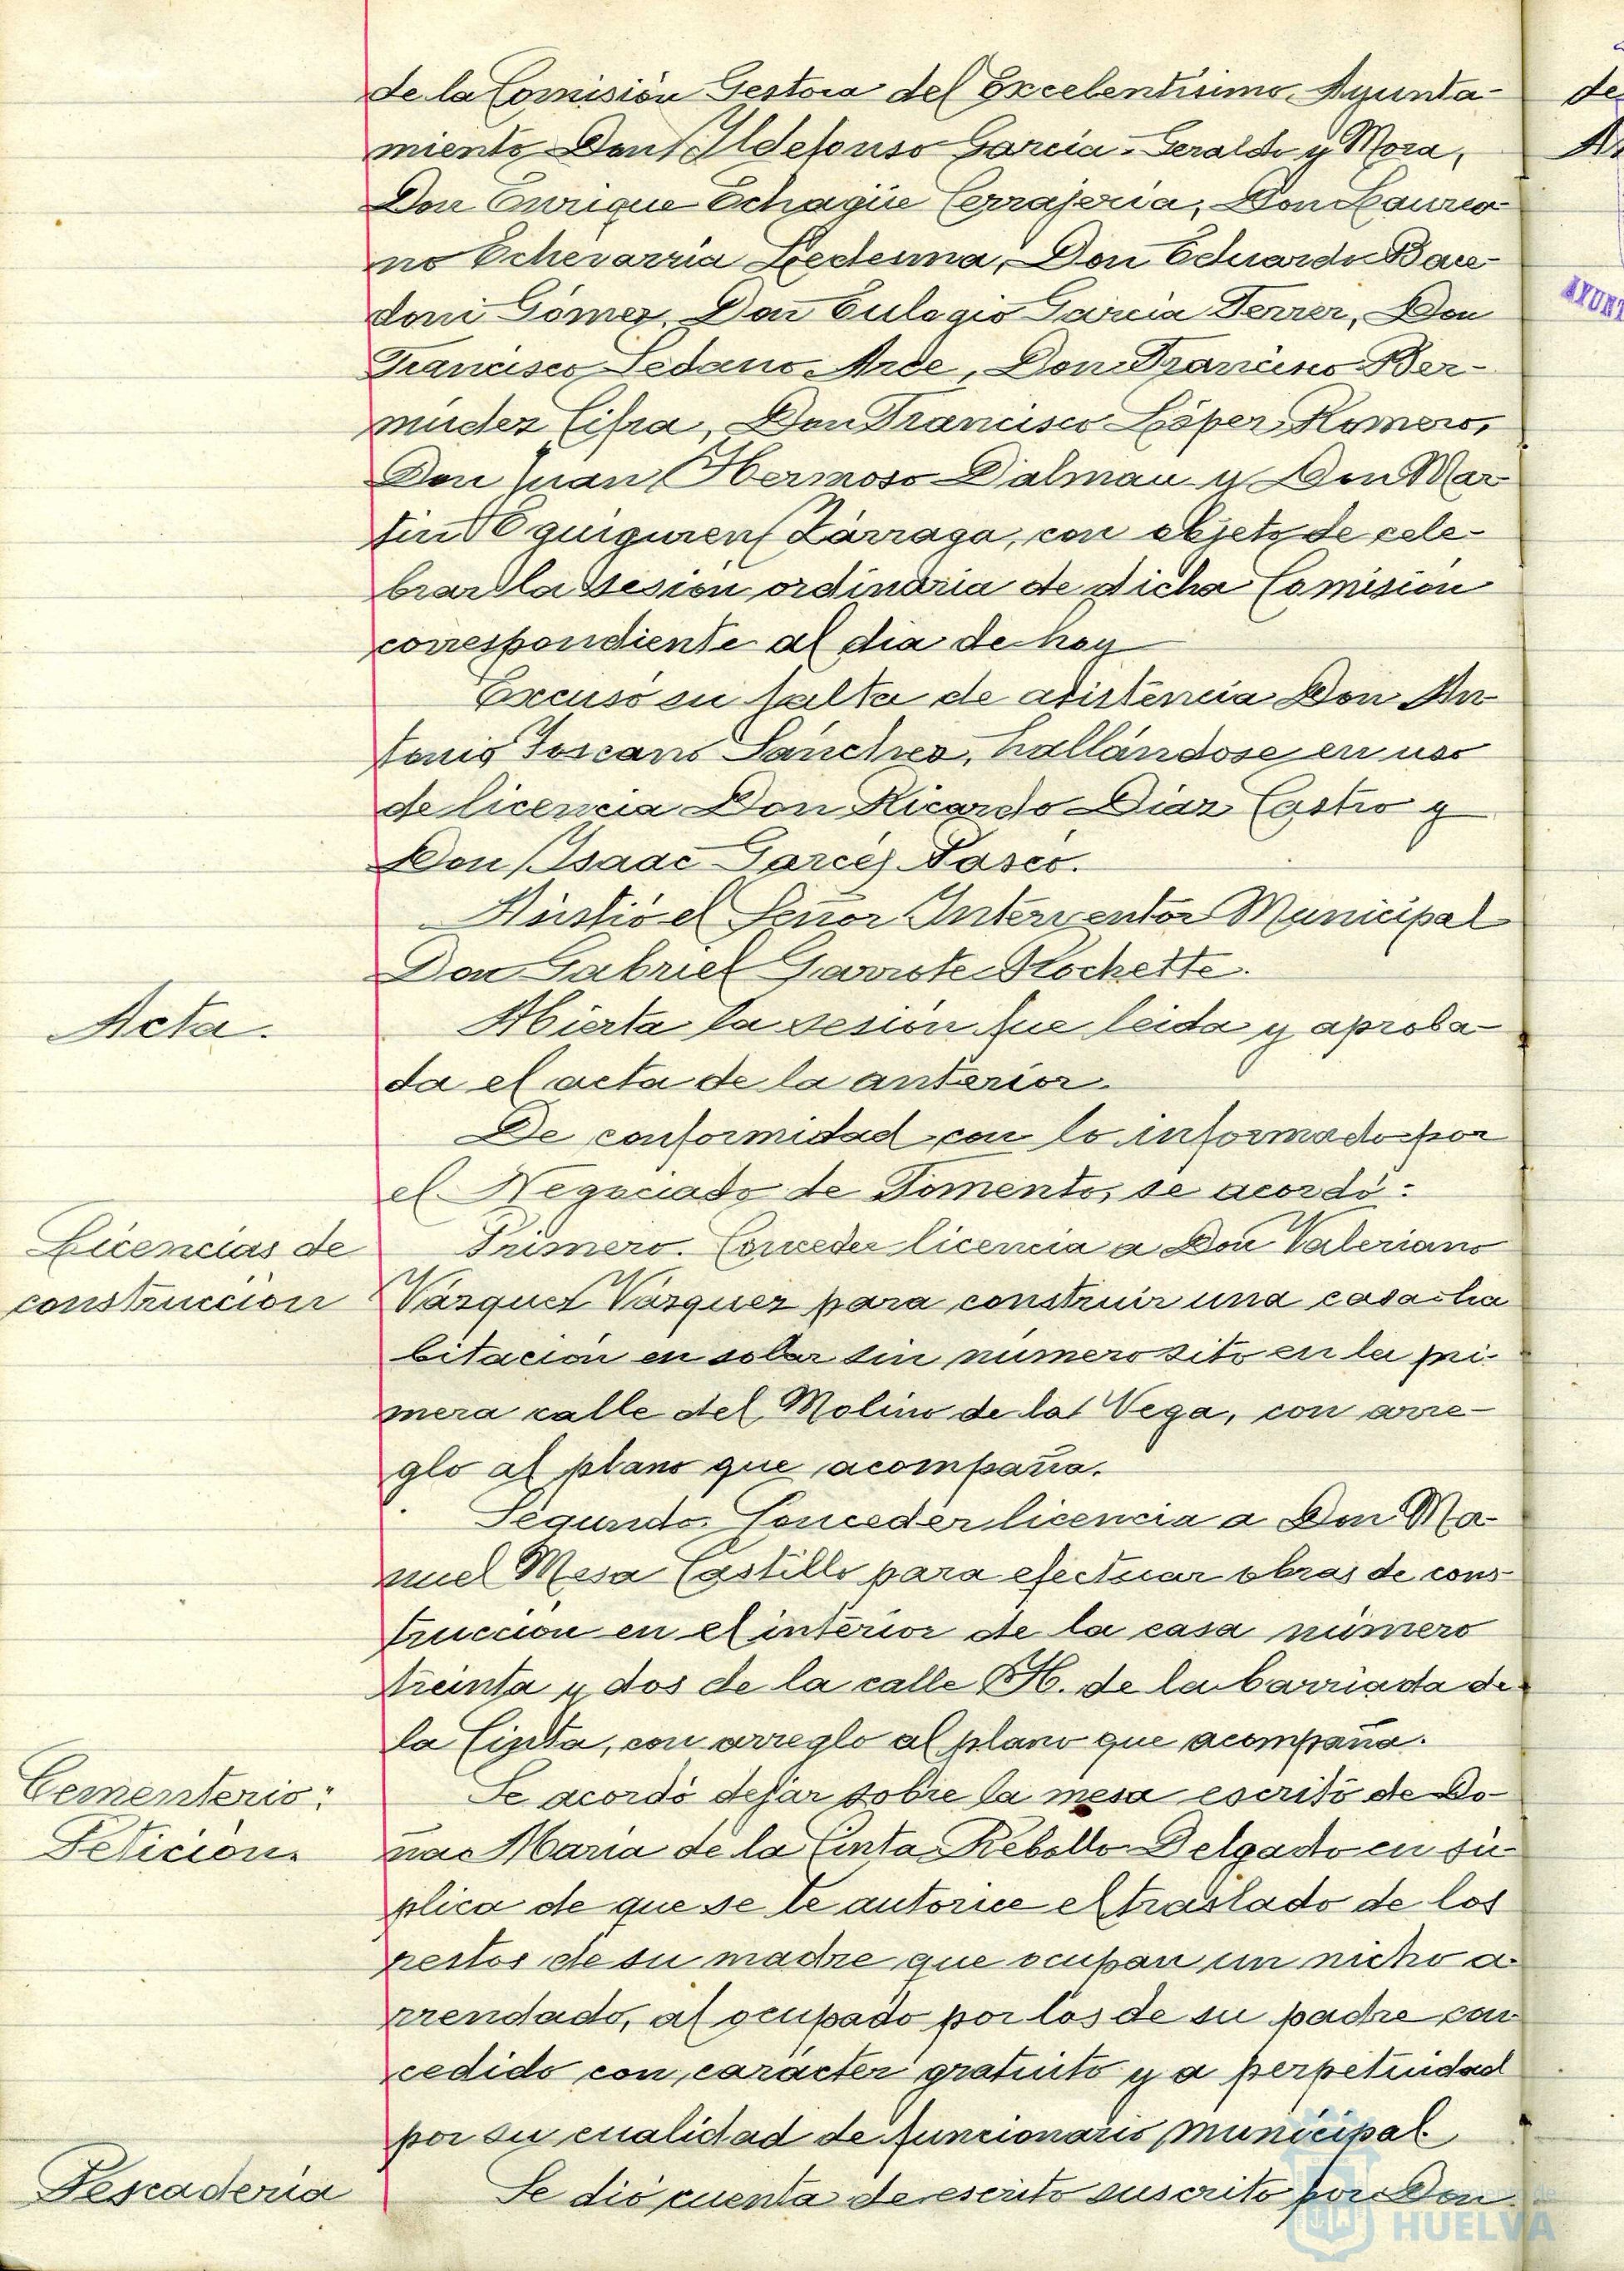 de la Comisión Gestora del Excelentísimo Ayunta-
miento Don Ildefonso Garcia-Geraldo y Mora,
Don Enrique Echagüe Cerrajeria, Don Laurea
no Echevarria Ledesma, Don Eduardo Bae-
doni Gómez, Don Eulogio Garcia Ferrer, Don
Francisco Sedano Arce, Don Francisco Ber-
mudez Cifra, Don Francisco López Romero,
Don Juan Hermoso Dalmau y Don Mar
tin Eguiguren Zárraga, con objeto de cele-
brar la sesión ordinaria de dicha Comisión
correspondiente al dia de hoy
Excusó su falta de asistencia Don An
tonio Toscano Sánchez, hallándose en uso
de licencia Don Ricardo Diaz Castro y
Don Isaac Garcés Pasco.
Asistió el Señor Interventor Municipal
Don Gabriel Garrote Rochette.
Acta.
Abierta la sesión fue leida y aproba-
da el acta de la anterior.
De conformidad con lo informado por
el Negociado de Fomento, se acordó:
Licencias de
construccion
Primero. Conceder licencia a Don Valeriano
Vázquez Vázquez para construir una casa ha
bitación en solar sin número sito en la pri-
mera calle del Molino de la Vega, con arre-
glo al plano que acompaña.
Segundo. Conceder licencia a Don Ma-
nuel Mesa Castillo para efectuar obras de cons-
trucción en el interior de la casa número
treinta y dos de la calle H. de la barriada de
la Cinta, con arreglo al plano que acompaña.
Cementerio:
Petición.
Se acordó dejar sobre la mesa escrito de Do-
ña Maria de la Cinta Rebollo Delgado en sú-
plica de que se le autorice el traslado de los
restos de su madre que ocupan un nicho a
rrendado, al ocupado por los de su padre con
cedido con carácter gratuito y a perpetuidad
por su cualidad de funcionario municipal
Pescaderia
Se dió cuenta de escrito suscrito por Don
HUELVA